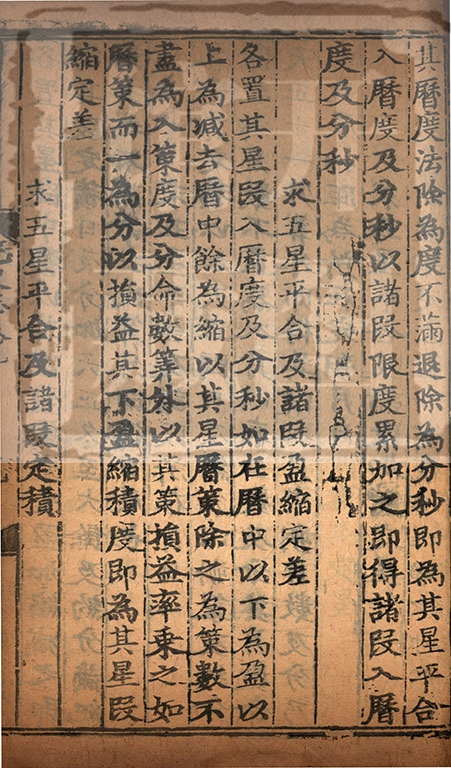 其曆度法除為度不滿退除為分秒即為其星平合
入曆度及分秒以諸段限度累加之即得諸段入曆
度及分秒
求五星平合及諸段盈縮定差
各置其星段入曆度及分秒如在曆中以下為盈以
上為減去曆中餘為縮以其星曆策除之為策數不
盡為入策度及分命數筭外以其策損益率乗之如
曆策而一為分以損益其下盈縮積度即為其星段
縮定差
求五星平合及諸段定積